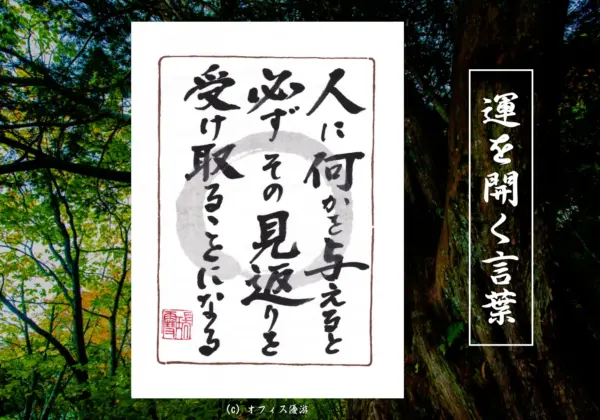 運を開く言葉
人に何かを与えると
必ずその見返りを
受け取ることになる
(C) オフィス優游